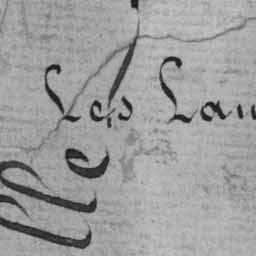 Les Lau